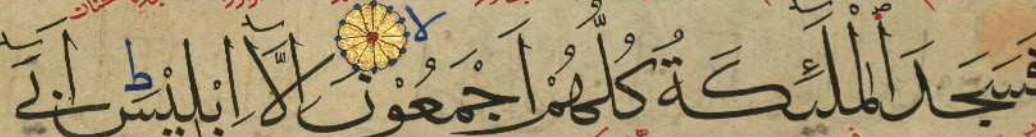 فَسَجَدَ الْمَلٰٓئِكَةُ كُلُّهُمْ اَجْمَعُوْنَ لا اِلَّآ اِبْلٖيسَ ط اَبٰٓى